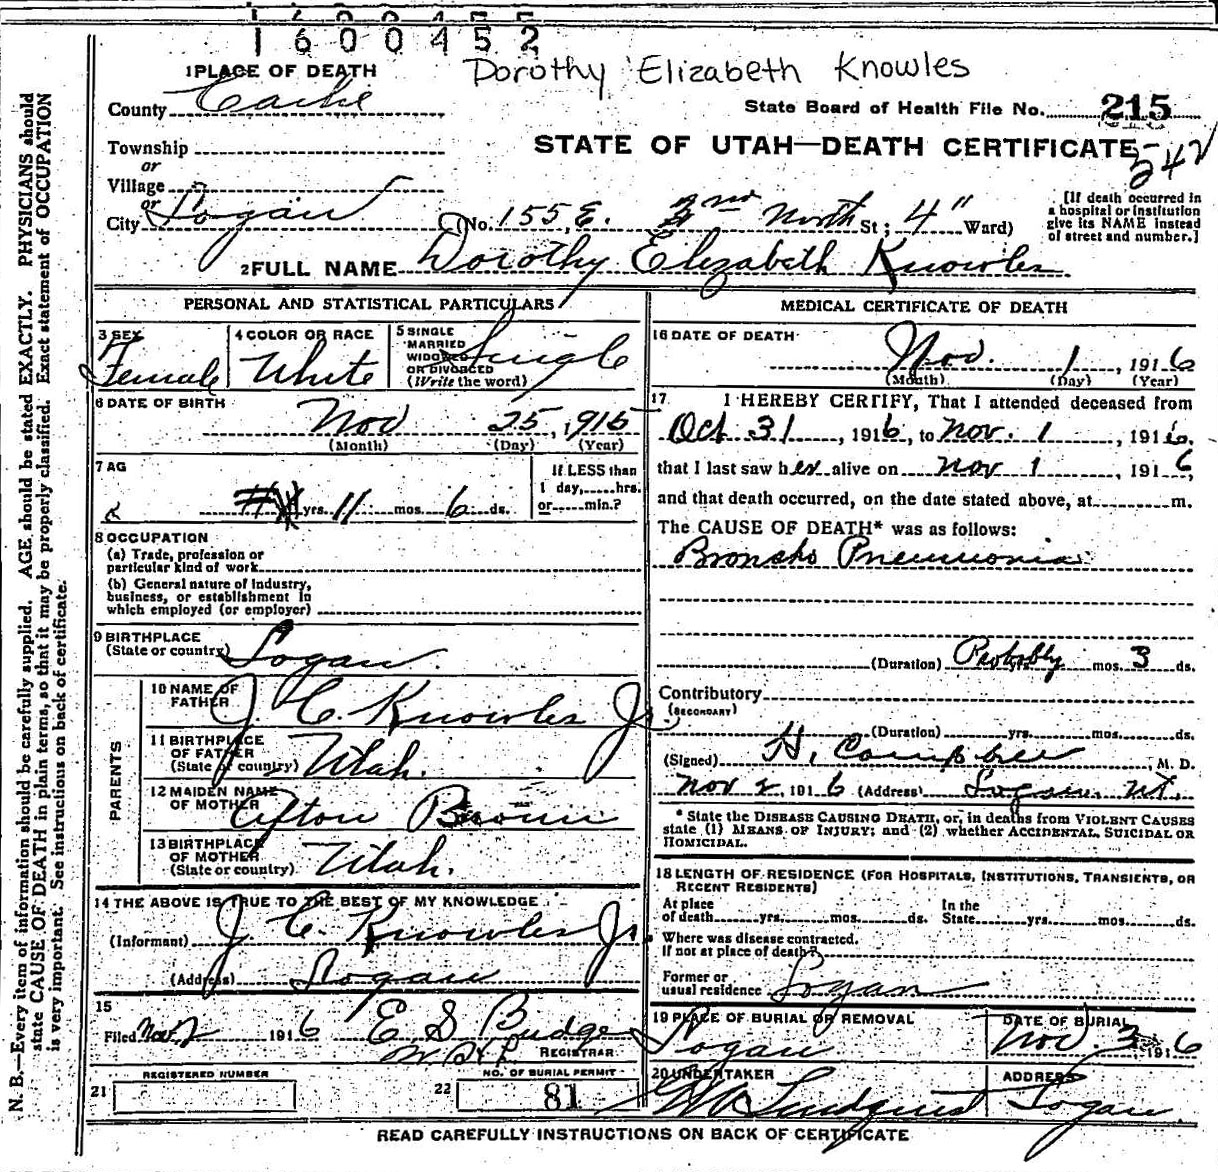 1600452
Dorothy Elizabeth Knowles
1 PLACE OF DEATH
County Cache
State Board of Health File No. 215
Township
or
STATE OF UTAH—DEATH CERTIFICATE
242
Village
or
City Logan (No. 155, E. 2nd North St; 4" Ward)
[If death occurred in
a hospital or institution
give its NAME instead
of street and number.]
2 FULL NAME Dorothy Elizabeth Knowles
PERSONAL AND STATISTICAL PARTICULARS
3 SEX
Female
4 COLOR OR RACE
White
5 SINGLE
MARRIED
WIDOWED
OR DIVORCED
(Write the word)
Single
6 DATE OF BIRTH
Nov 25, 1915
(Month) (Day) (Year)
7 AG
yrs. 11 mos. 6 ds.
If LESS than
1 day, hrs.
or min.?
8 OCCUPATION
(a) Trade, profession or
particular kind of work
(b) General nature of industry,
business, or establishment in
which employed (or employer)
9 BIRTHPLACE
(State or country) Logan.
PARENTS
10 NAME OF
FATHER J. C. Knowles Jr.
11 BIRTHPLACE
OF FATHER
(State or country) Utah.
12 MAIDEN NAME
OF MOTHER Afton
13 BIRTHPLACE
OF MOTHER
(State or country) Utah.
14 THE ABOVE IS TRUE TO THE BEST OF MY KNOWLEDGE
(Informant) J. C. Knowles Jr.
(Address) Logan
15
Filed Nov 2 1916 E S Budge
REGISTRAR
REGISTERED NUMBER
21
NO. OF BURIAL PERMIT
22 81
MEDICAL CERTIFICATE OF DEATH
16 DATE OF DEATH
Nov. 1, 1916
(Month) (Day) (Year)
17 I HEREBY CERTIFY, That I attended deceased from
Oct 31, 1916, to Nov. 1, 1916.
that I last saw her alive on Nov 1 1916,
and that death occurred, on the date stated above, at m.
The CAUSE OF DEATH* was as follows:
Broncho Pneumonia
(Duration) Probably mos. 3 ds.
Contributory
(SECONDARY)
(Duration) yrs. mos. ds.
(Signed) H. M. D.
Nov 2 1916 (Address) Logan. Ut.
* State the DISEASE CAUSING DEATH, or, in deaths from VIOLENT CAUSES
state (1) MEANS OF INJURY; and (2) whether ACCIDENTAL, SUICIDAL OR
HOMICIDAL.
18 LENGTH OF RESIDENCE (FOR HOSPITALS, INSTITUTIONS, TRANSIENTS, OR
RECENT RESIDENTS)
At place
of death yrs. mos. ds.
In the
State yrs. mos. ds.
Where was disease contracted,
If not at place of death?
Former or
usual residence Logan
19 PLACE OF BURIAL OR REMOVAL
Logan
DATE OF BURIAL
Nov. 3 1916
20 UNDERTAKER
Lindquist
ADDRESS
Logan.
READ CAREFULLY INSTRUCTIONS ON BACK OF CERTIFICATE
N. B.—Every item of information should be carefully supplied. AGE should be stated EXACTLY. PHYSICIANS should
state CAUSE OF DEATH in plain terms, so that it may be properly classified. Exact statement of OCCUPATION
is very important. See instructions on back of certificate.